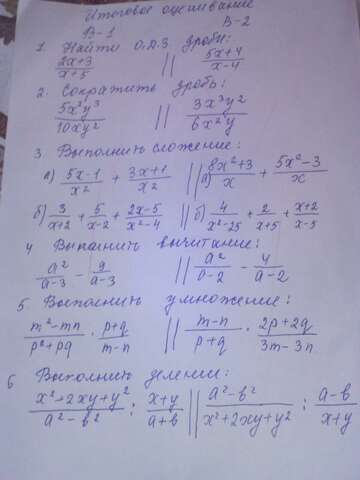 Итоговое оценивание
В-1 В-2
1. Найти О.Д.З. дроби:
(2x+3)/(x+5) || (5x+4)/(x-4)
2. Сократить дробь:
(5x²y³)/(10xy²) || (3x³y²)/(6x²y)
3 Выполнить сложение:
а) (5x-1)/x² + (3x+1)/x² || а) (8x²+3)/x + (5x²-3)/x
б) 3/(x+2) + 5/(x-2) + (2x-5)/(x²-4) || б) 4/(x²-25) + 2/(x+5) + (x+2)/(x-5)
4 Выполнить вычитание:
a²/(a-3) - 9/(a-3) || a²/(a-2) - 4/(a-2)
5. Выполнить умножение:
(m²-mn)/(p²+pq) · (p+q)/(m-n) || (m-n)/(p+q) · (2p+2q)/(3m-3n)
6 Выполнить делении:
(x²+2xy+y²)/(a²-b²) : (x+y)/(a+b) || (a²-b²)/(x²+2xy+y²) : (a-b)/(x+y)